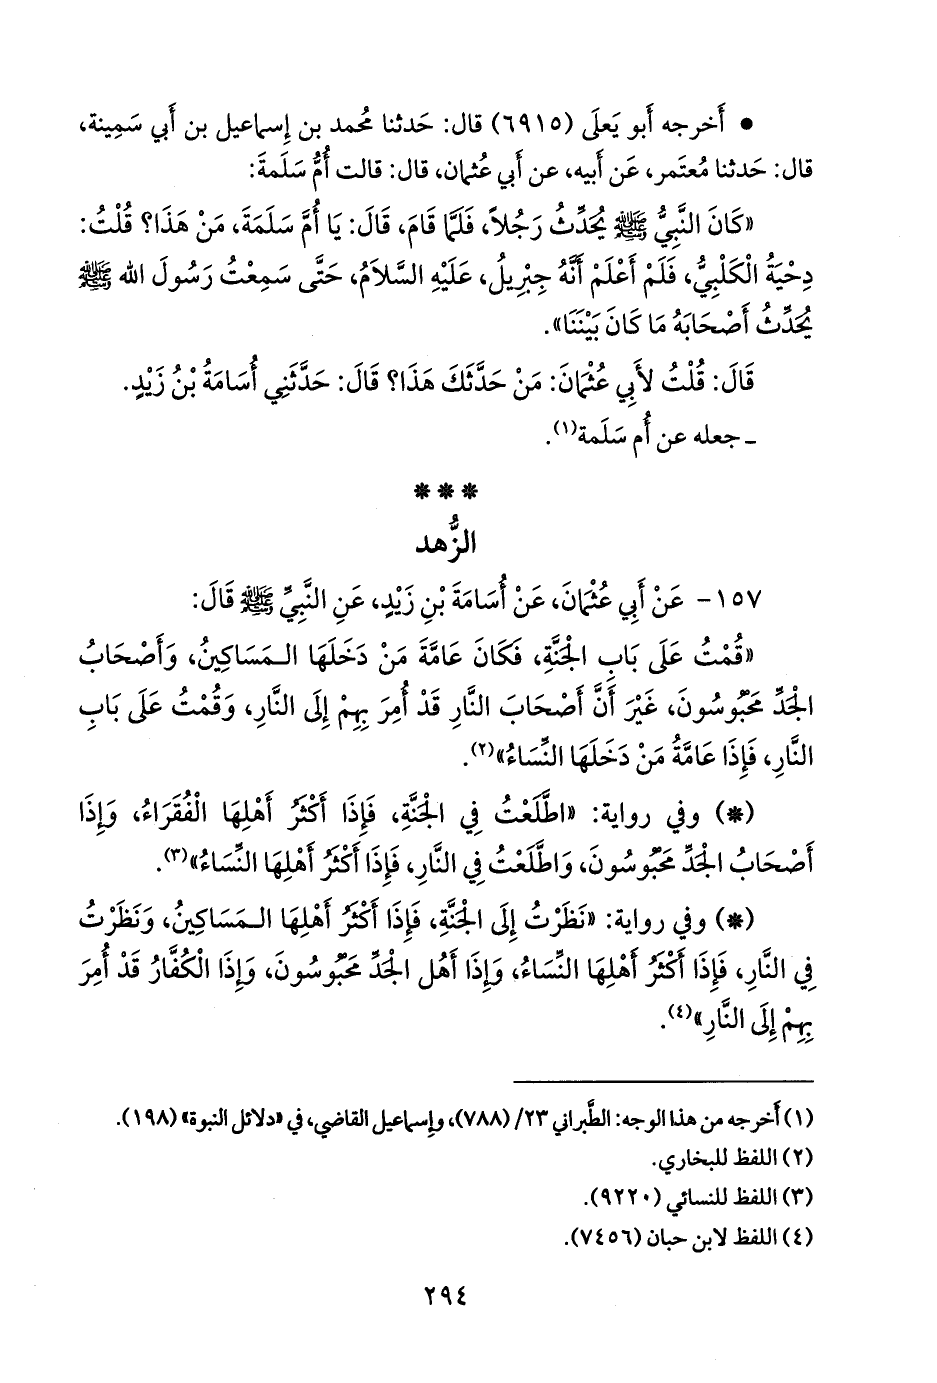 • أَخرجه أَبو يَعلَى (٦٩١٥) قال: حَدثنا مُحمد بن إِسماعيل بن أَبي سَمِينة،
قال: حَدثنا مُعتَمر، عَن أَبيه، عن أَبي عُثمان، قال: قالت أُمُّ سَلَمةَ:
«كَانَ النَّبِيُّ ﷺ يُحَدِّثُ رَجُلاً، فَلَمَّا قَامَ، قَالَ: يَا أُمَّ سَلَمَةَ، مَنْ هَذَا؟ قُلْتُ:
دِحْيَةُ الْكَلْبِيُّ، فَلَمْ أَعْلَمْ أَنَّهُ جِبْرِيلُ، عَلَيْهِ السَّلَامُ، حَتَّى سَمِعْتُ رَسُولَ الله ﷺ
يُحَدِّثُ أَصْحَابَهُ مَا كَانَ بَيْنَنَا».
قَالَ: قُلْتُ لأَبِي عُثْمَانَ: مَنْ حَدَّثَكَ هَذَا؟ قَالَ: حَدَّثَنِي أُسَامَةُ بْنُ زَيْدٍ.
ـ جعله عن أُم سَلَمة(١).
***
الزُّهد
١٥٧- عَنْ أَبِي عُثْمَانَ، عَنْ أُسَامَةَ بْنِ زَيْدٍ، عَنِ النَّبِيِّ ﷺ قَالَ:
«قُمْتُ عَلَى بَابِ الْجَنَّةِ، فَكَانَ عَامَّةَ مَنْ دَخَلَهَا الـمَسَاكِينُ، وَأَصْحَابُ
الْجَدِّ مَحْبُوسُونَ، غَيْرَ أَنَّ أَصْحَابَ النَّارِ قَدْ أُمِرَ بِهِمْ إِلَى النَّارِ، وَقُمْتُ عَلَى بَابِ
النَّارِ، فَإِذَا عَامَّةُ مَنْ دَخَلَهَا النِّسَاءُ»(٢).
(*) وفي رواية: «اطَّلَعْتُ فِي الْجَنَّةِ، فَإِذَا أَكْثَرُ أَهْلِهَا الْفُقَرَاءُ، وَإِذَا
أَصْحَابُ الْجَدِّ مَحْبُوسُونَ، وَاطَّلَعْتُ فِي النَّارِ، فَإِذَا أَكْثَرُ أَهْلِهَا النِّسَاءُ»(٣).
(*) وفي رواية: «نَظَرْتُ إِلَى الْجَنَّةِ، فَإِذَا أَكْثَرُ أَهْلِهَا الـمَسَاكِينُ، وَنَظَرْتُ
فِي النَّارِ، فَإِذَا أَكْثَرُ أَهْلِهَا النِّسَاءُ، وَإِذَا أَهْل الْجَدِّ مَحْبُوسُونَ، وَإِذَا الْكُفَّارُ قَدْ أُمِرَ
بِهِمْ إِلَى النَّارِ»(٤).
(١) أَخرجه من هذا الوجه: الطَّبراني ٢٣/ (٧٨٨)، وإسماعيل القاضي، في «دلائل النبوة» (١٩٨).
(٢) اللفظ للبخاري.
(٣) اللفظ للنسائي (٩٢٢٠).
(٤) اللفظ لابن حبان (٧٤٥٦).
٢٩٤